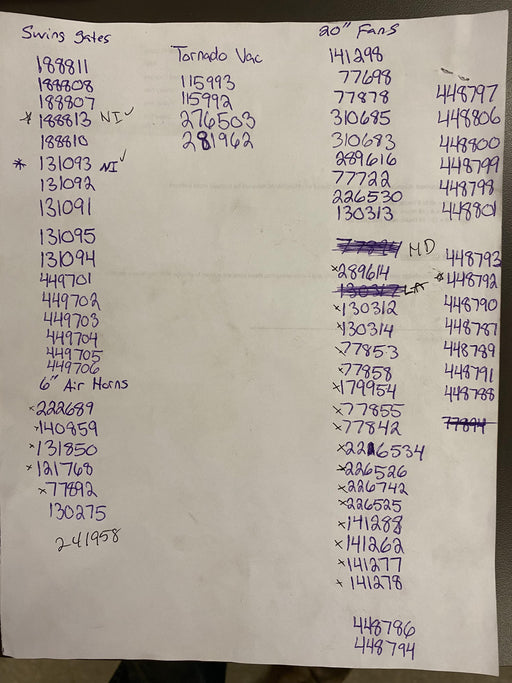 Swing gates
188811
188808
188807
* 188813 NI ✓
188810
* 131093 NI ✓
131092
131091
131095
131094
449701
449702
449703
449704
449705
449706
6" Air Horns
×222689
×140859
×131850
×121768
×77892
130275
241958
Tornado Vac
115993
115992
276503
281962
20" Fans
141298
77698
77878
310685
310683
289616
77722
226530
130313
77894 MD
×289614
130317 LA
×130312
×130314
×77853
×77858
×179954
×77855
×77842
×226534
×226526
×226742
×226525
×141288
×141262
×141277
×141278
448786
448794
448797
448806
448800
448799
448798
448801
448793
*448792
448790
448787
448789
448791
448788
77894